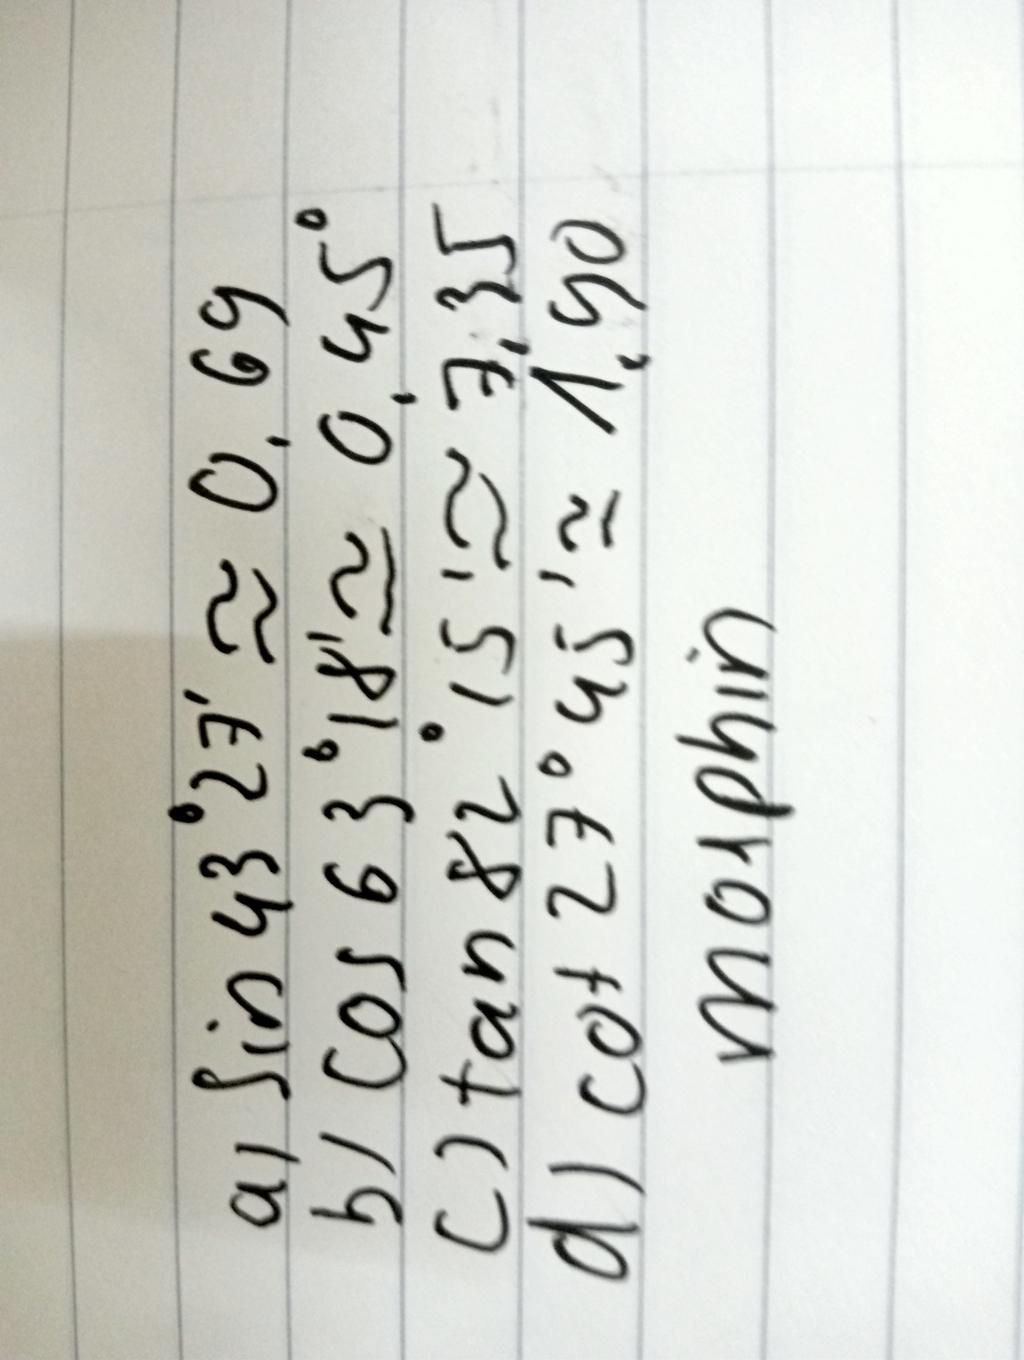 a) Sin 43°27' ≅ 0,69
b) Cos 63°18' ≅ 0,45°
c) tan 82°15' ≅ 7,35
d) cot 27°45' ≈ 1,90
morphin